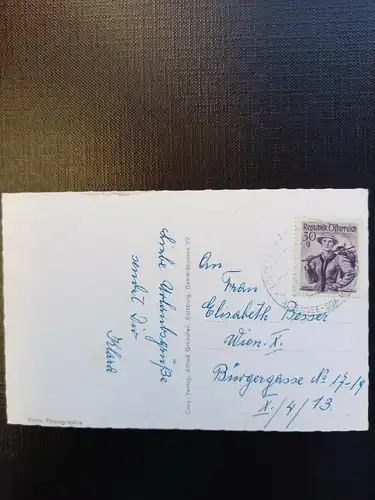 Liebe Urlaubsgrüße
sendet Dir
Klara
Echte Photographie
Cosy-Verlag, Alfred Gründler, Salzburg, Getreidegasse 22
Republik Österreich
30
g
An
Frau
Elisabeth Besser
Wien X.
Bürgergasse No 17-19
X./4/13.